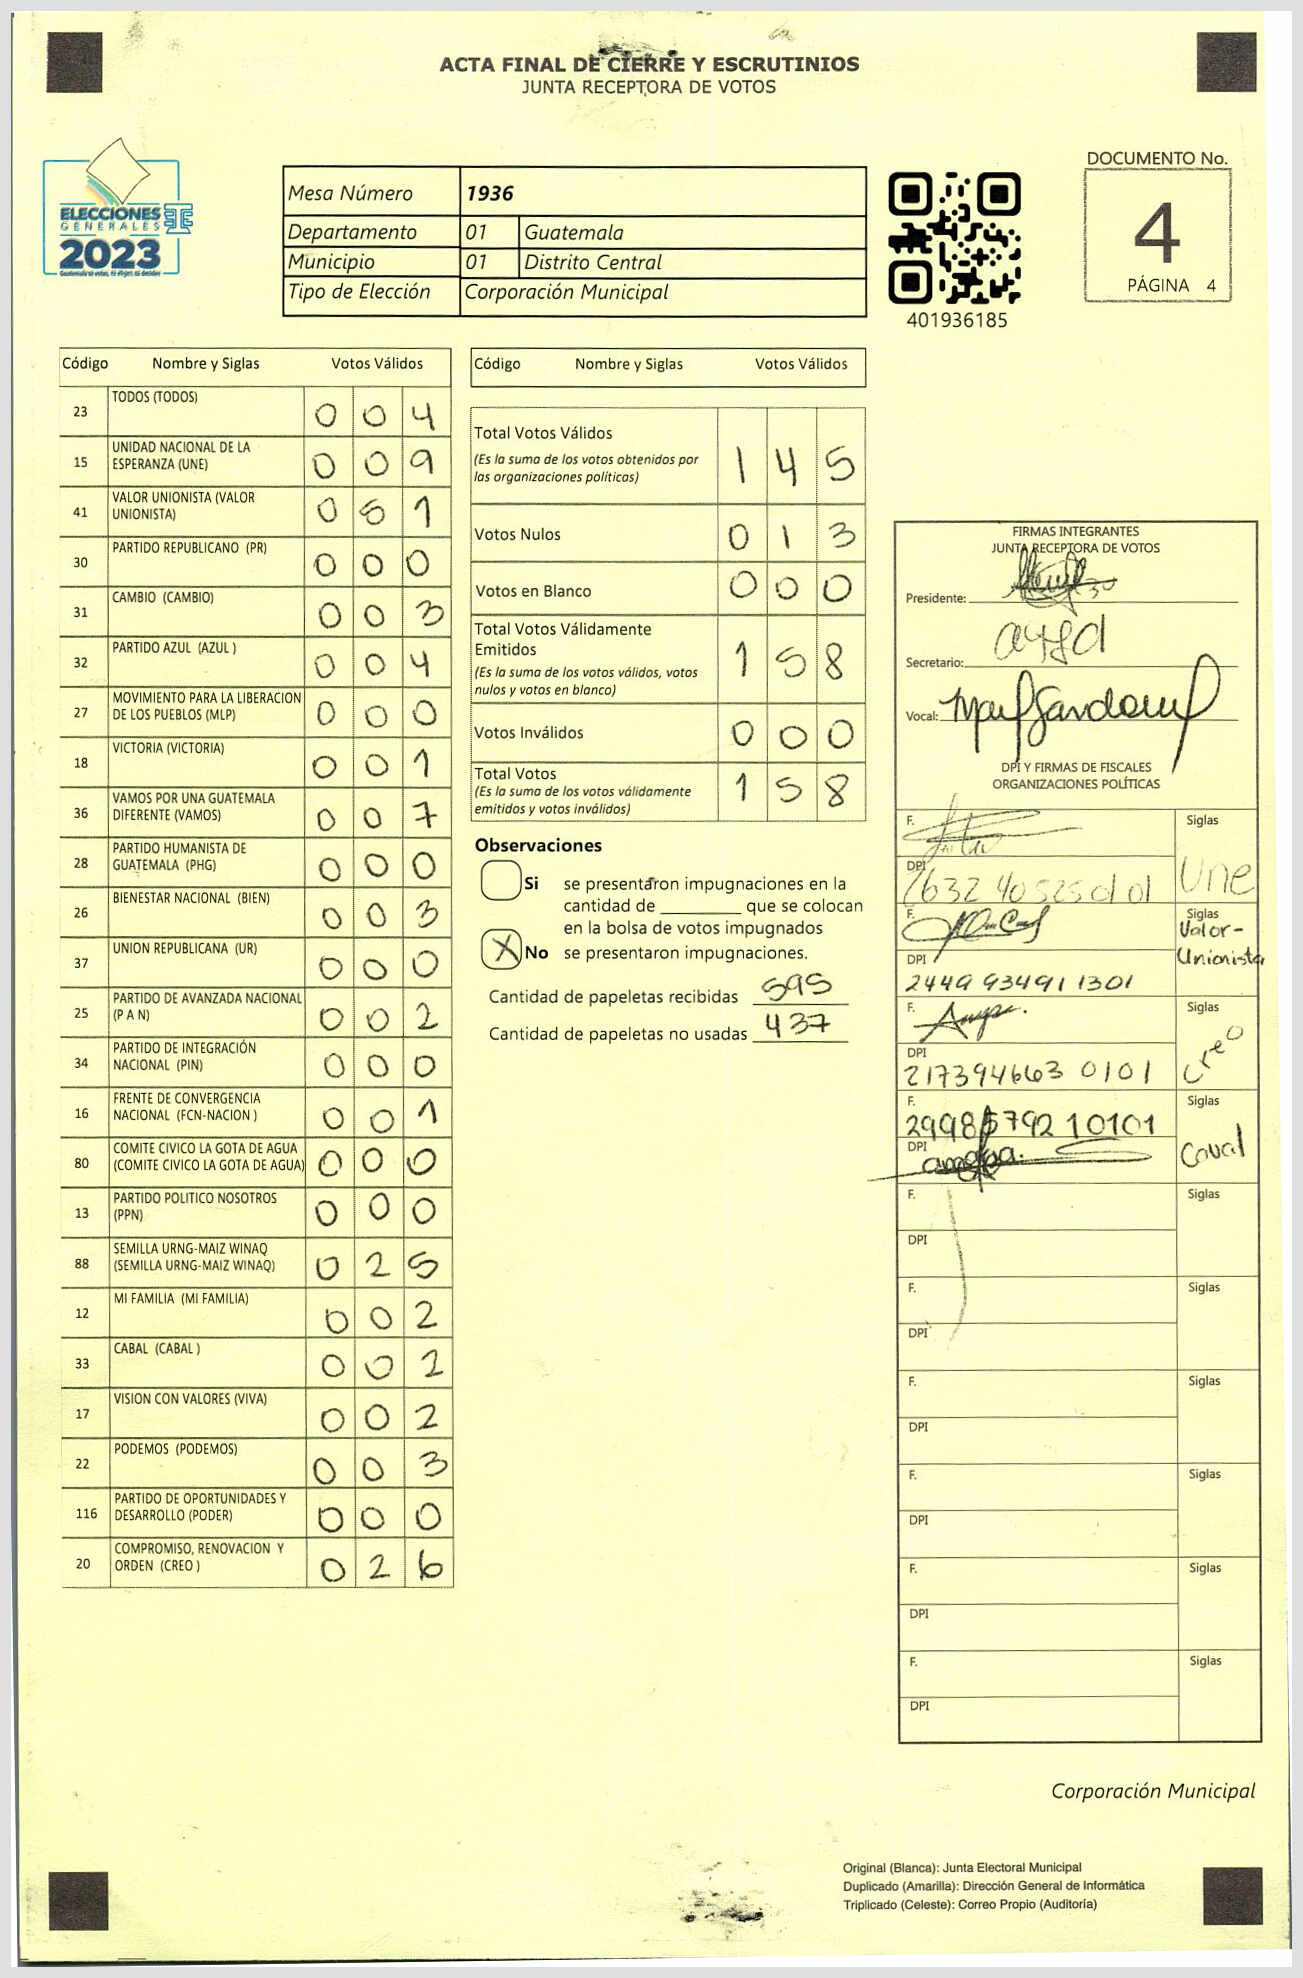 ACTA FINAL DE CIERRE Y ESCRUTINIOS
JUNTA RECEPTORA DE VOTOS
ELECCIONES
GENERALES
2023
Mesa Número 1936
Departamento 01 Guatemala
Municipio 01 Distrito Central
Tipo de Elección Corporación Municipal
401936185
DOCUMENTO No.
4
PÁGINA 4
Código Nombre y Siglas Votos Válidos
23 TODOS (TODOS) 0 0 4
15 UNIDAD NACIONAL DE LA
ESPERANZA (UNE) 0 0 9
41 VALOR UNIONISTA (VALOR
UNIONISTA) 0 5 1
30 PARTIDO REPUBLICANO (PR) 0 0 0
31 CAMBIO (CAMBIO) 0 0 3
32 PARTIDO AZUL (AZUL ) 0 0 4
27 MOVIMIENTO PARA LA LIBERACION
DE LOS PUEBLOS (MLP) 0 0 0
18 VICTORIA (VICTORIA) 0 0 1
36 VAMOS POR UNA GUATEMALA
DIFERENTE (VAMOS) 0 0 7
28 PARTIDO HUMANISTA DE
GUATEMALA (PHG) 0 0 0
26 BIENESTAR NACIONAL (BIEN) 0 0 3
37 UNION REPUBLICANA (UR) 0 0 0
25 PARTIDO DE AVANZADA NACIONAL
(P A N) 0 0 2
34 PARTIDO DE INTEGRACIÓN
NACIONAL (PIN) 0 0 0
16 FRENTE DE CONVERGENCIA
NACIONAL (FCN-NACION ) 0 0 1
80 COMITE CIVICO LA GOTA DE AGUA
(COMITE CIVICO LA GOTA DE AGUA) 0 0 0
13 PARTIDO POLITICO NOSOTROS
(PPN) 0 0 0
88 SEMILLA URNG-MAIZ WINAQ
(SEMILLA URNG-MAIZ WINAQ) 0 2 5
12 MI FAMILIA (MI FAMILIA) 0 0 2
33 CABAL (CABAL ) 0 0 2
17 VISION CON VALORES (VIVA) 0 0 2
22 PODEMOS (PODEMOS) 0 0 3
116 PARTIDO DE OPORTUNIDADES Y
DESARROLLO (PODER) 0 0 0
20 COMPROMISO, RENOVACION Y
ORDEN (CREO ) 0 2 6
Código Nombre y Siglas Votos Válidos
Total Votos Válidos
(Es la suma de los votos obtenidos por
las organizaciones políticas) 1 4 5
Votos Nulos 0 1 3
Votos en Blanco 0 0 0
Total Votos Válidamente
Emitidos
(Es la suma de los votos válidos, votos
nulos y votos en blanco) 1 5 8
Votos Inválidos 0 0 0
Total Votos
(Es la suma de los votos válidamente
emitidos y votos inválidos) 1 5 8
Observaciones
Si se presentaron impugnaciones en la
cantidad de ________ que se colocan
en la bolsa de votos impugnados
X No se presentaron impugnaciones.
Cantidad de papeletas recibidas 595
Cantidad de papeletas no usadas 437
FIRMAS INTEGRANTES
JUNTA RECEPTORA DE VOTOS
Presidente:
Secretario:
Vocal:
DPI Y FIRMAS DE FISCALES
ORGANIZACIONES POLÍTICAS
F. Siglas
DPI Une
F. Siglas
Valor-
Unionista
DPI
2449 93491 1301
F. Siglas
Creo
DPI
217394663 0101
F. Siglas
DPI
F. Siglas
DPI
F. Siglas
DPI
F. Siglas
DPI
F. Siglas
DPI
F. Siglas
DPI
F. Siglas
DPI
Corporación Municipal
Original (Blanca): Junta Electoral Municipal
Duplicado (Amarilla): Dirección General de Informática
Triplicado (Celeste): Correo Propio (Auditoría)